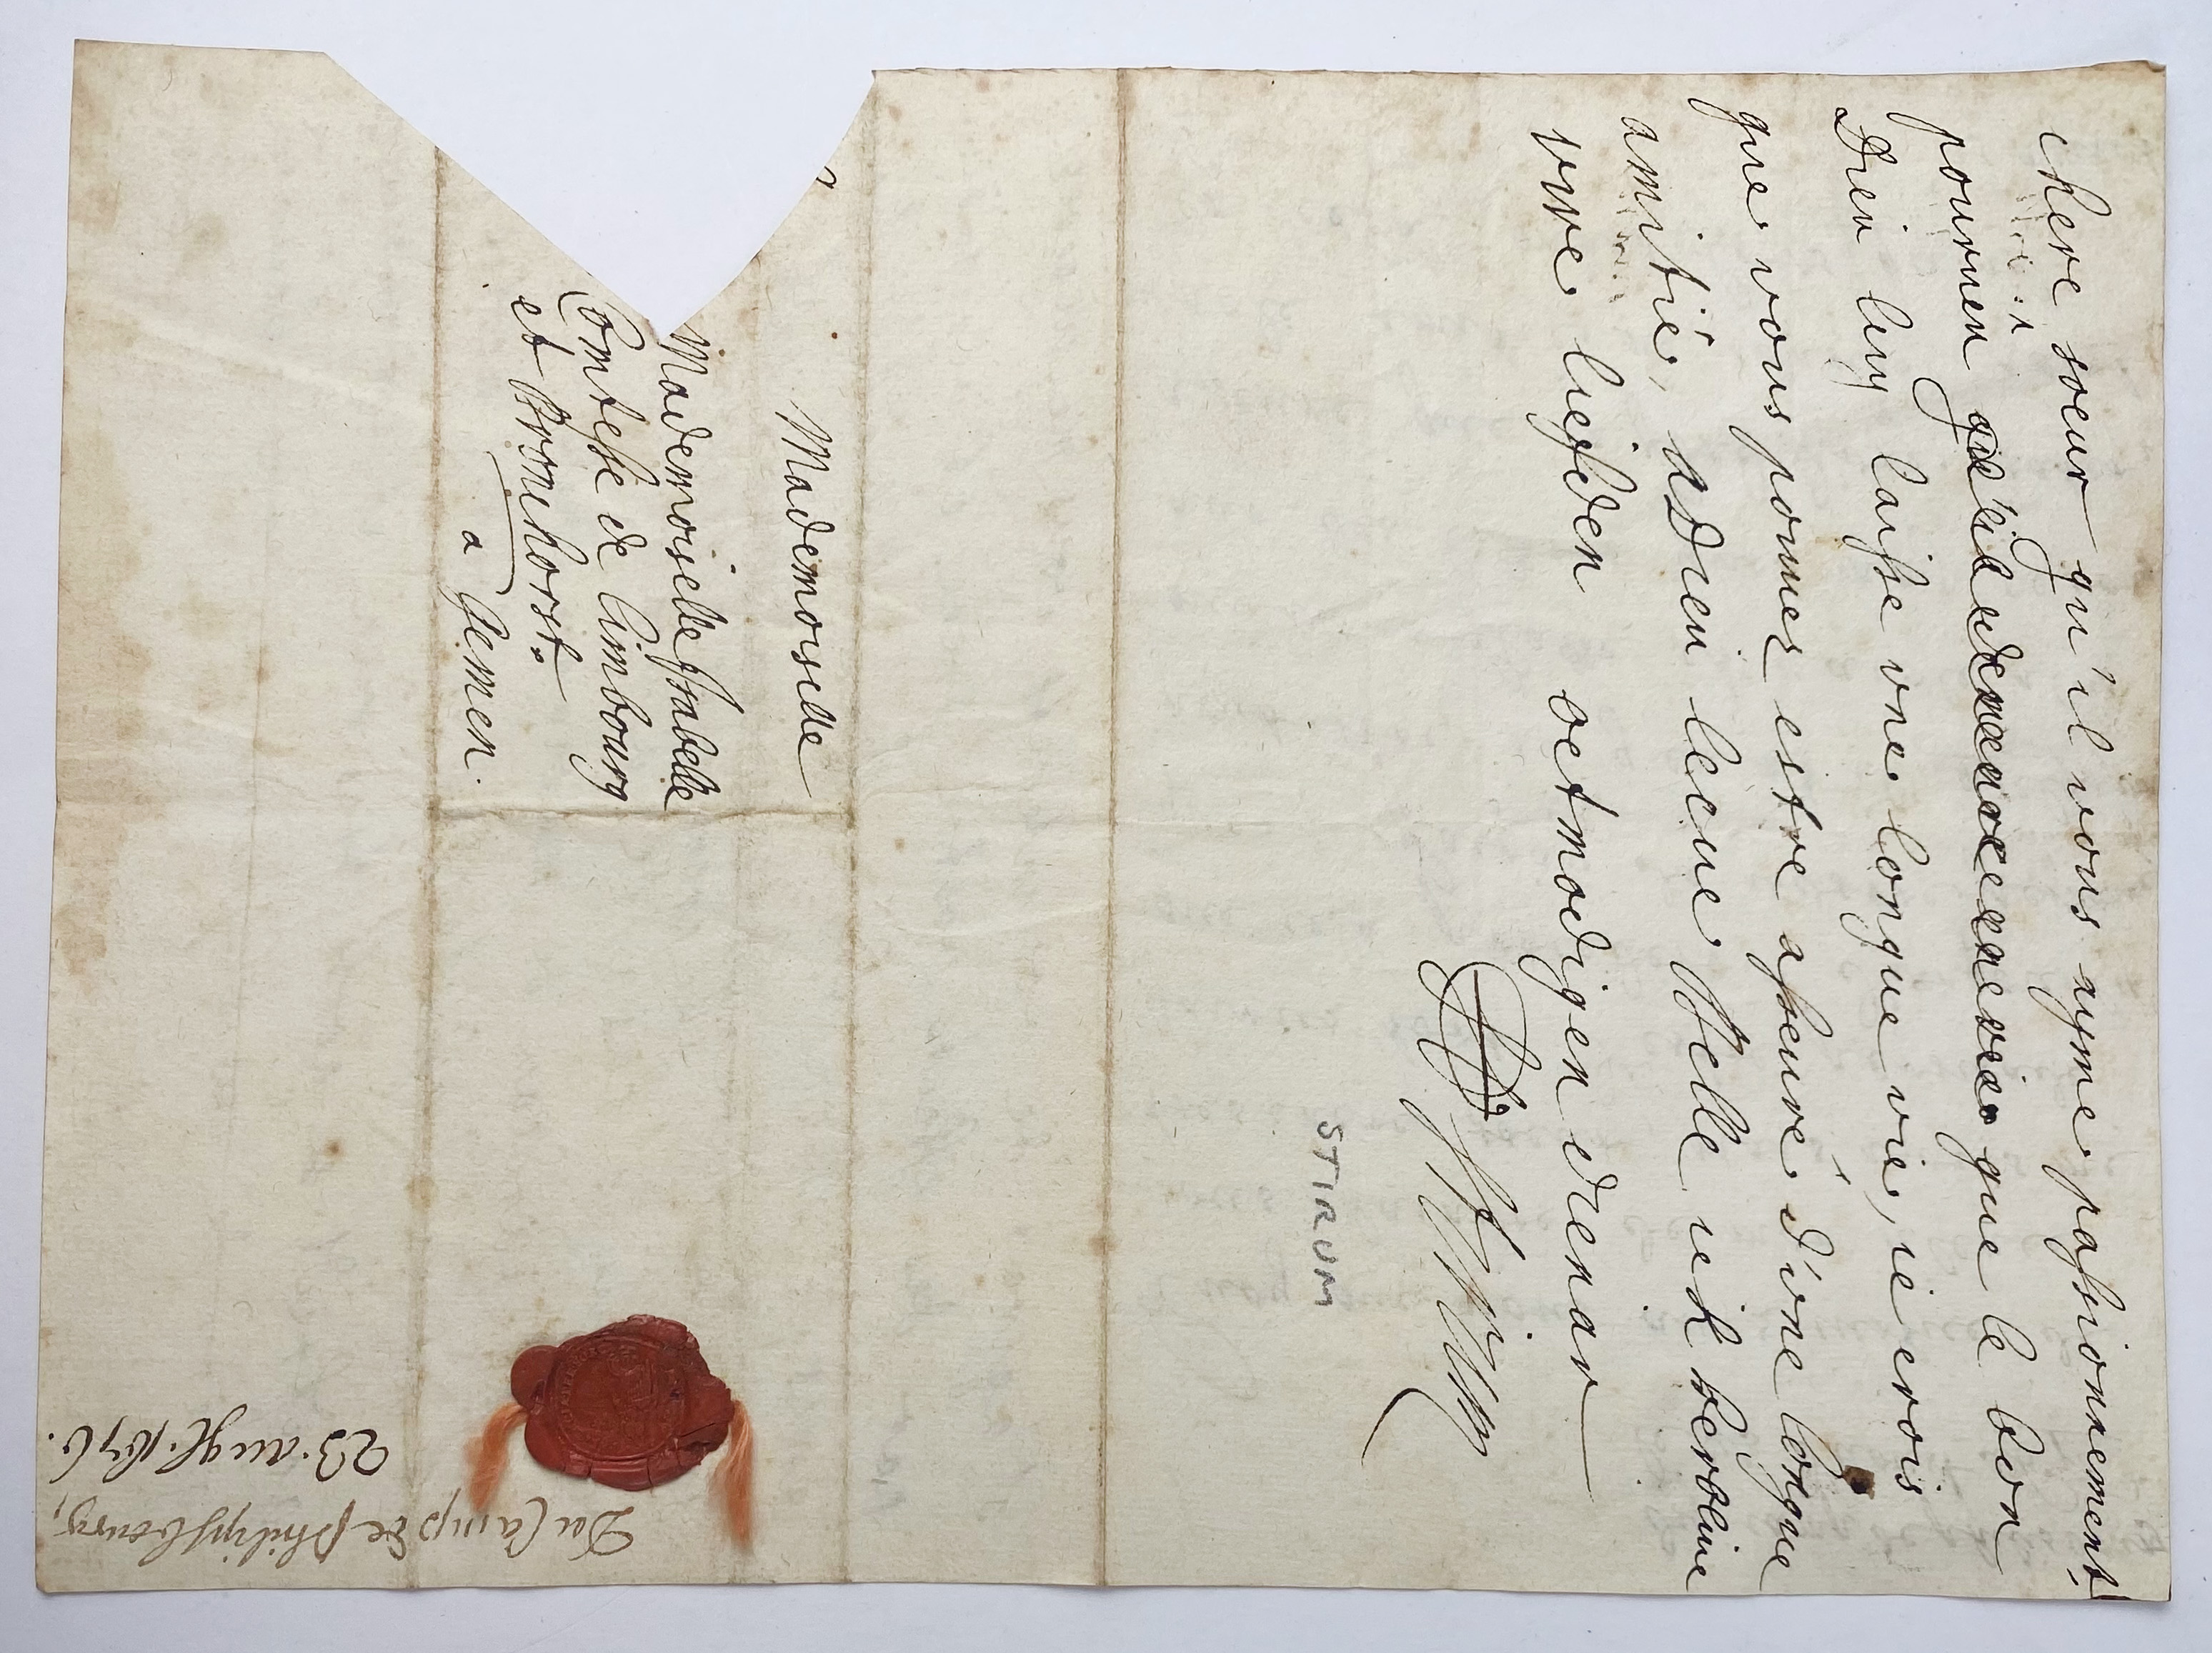 chere soeur qu'il vous ayme passionnement,
pourveu que le bon
Dieu luy laisse vne longue vie, ie crois
que vous pouuez estre asseuré d'vne longue
amitié, adieu lieue
vve liefsden oetmodigen dienar
STIRUM
Mademoiselle
Mademoiselle Isabelle
Comtesse de Limbourg
et Bronchorst.
a Gemen.
Du Camp de Philipsbourg,
23. aug. 1676.